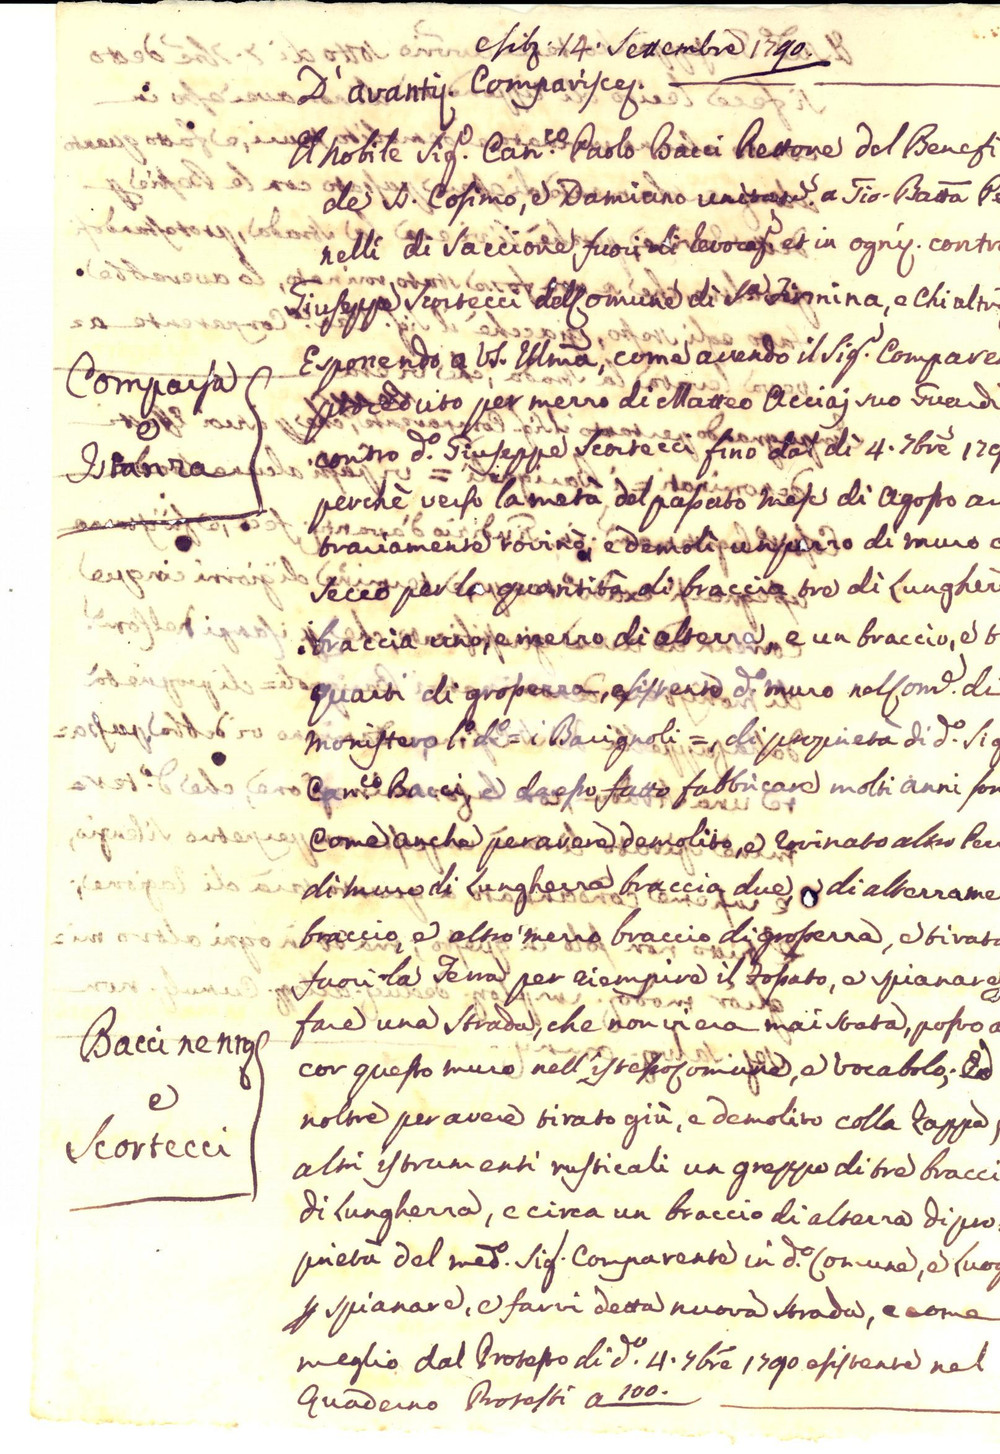 esib. 14. Settembre 1790.
D'avantij. Comparisce.
Il Nobile Sig.e Can.co Paolo Bacci Rettore del Benefi
de S. Cosimo, e Damiano a Gio. Batta
nelli di Saccione fuori et in ogni contr
Giuseppe Scortecci del Comune di S.a Firmina, e chi altr
Esponendo a VS. Illma, come avendo il Sig.e Compare
proceduto per mezzo di Matteo Acciaj suo Guardi
contro d.o Giuseppe Scortecci fino dal dì 4. 7bre 179
perchè verso la metà del passato Mese di Agosto a
trariamente rovinò, e demolì un pezzo di muro a
secco per la quantità di braccia tre di Lungher
braccia uno, e mezzo di altezza, e un braccio, e t
quarti di grossezza, esistente d.o muro nel Com.e di
Monistero l.o d.o = i Bacignoli =, di proprietà di d.o Sig
Can.co Bacci, e da esso fatto fabbricare molti anni son
Come anche per avere demolito, e rovinato altro Pez
di muro di Lunghezza braccia due, e di altezza me
braccio, e altro mezzo braccio di grossezza, e tirata
fuori la Terra per riempire il fossato, e spianare,
fare una strada, che non vi era mai stata, posto a
cor questo muro nell'istesso Comune, e vocabolo, Ed
noltre per avere tirato giù, e demolito colla Zappa,
altri istrumenti rusticali un greppo di tre bracci
di Lunghezza, e circa un braccio di altezza di pro=
prietà del med.o Sig.e Comparente in d.o Comune, e Luog
p spianare, e farvi detta nuova strada, e come
meglio dal Protesto di d.o 4. 7bre 1790 esistente nel
Quaderno Protesti a 100.
Comparsa
e
Istanza
Bacci
e
Scortecci